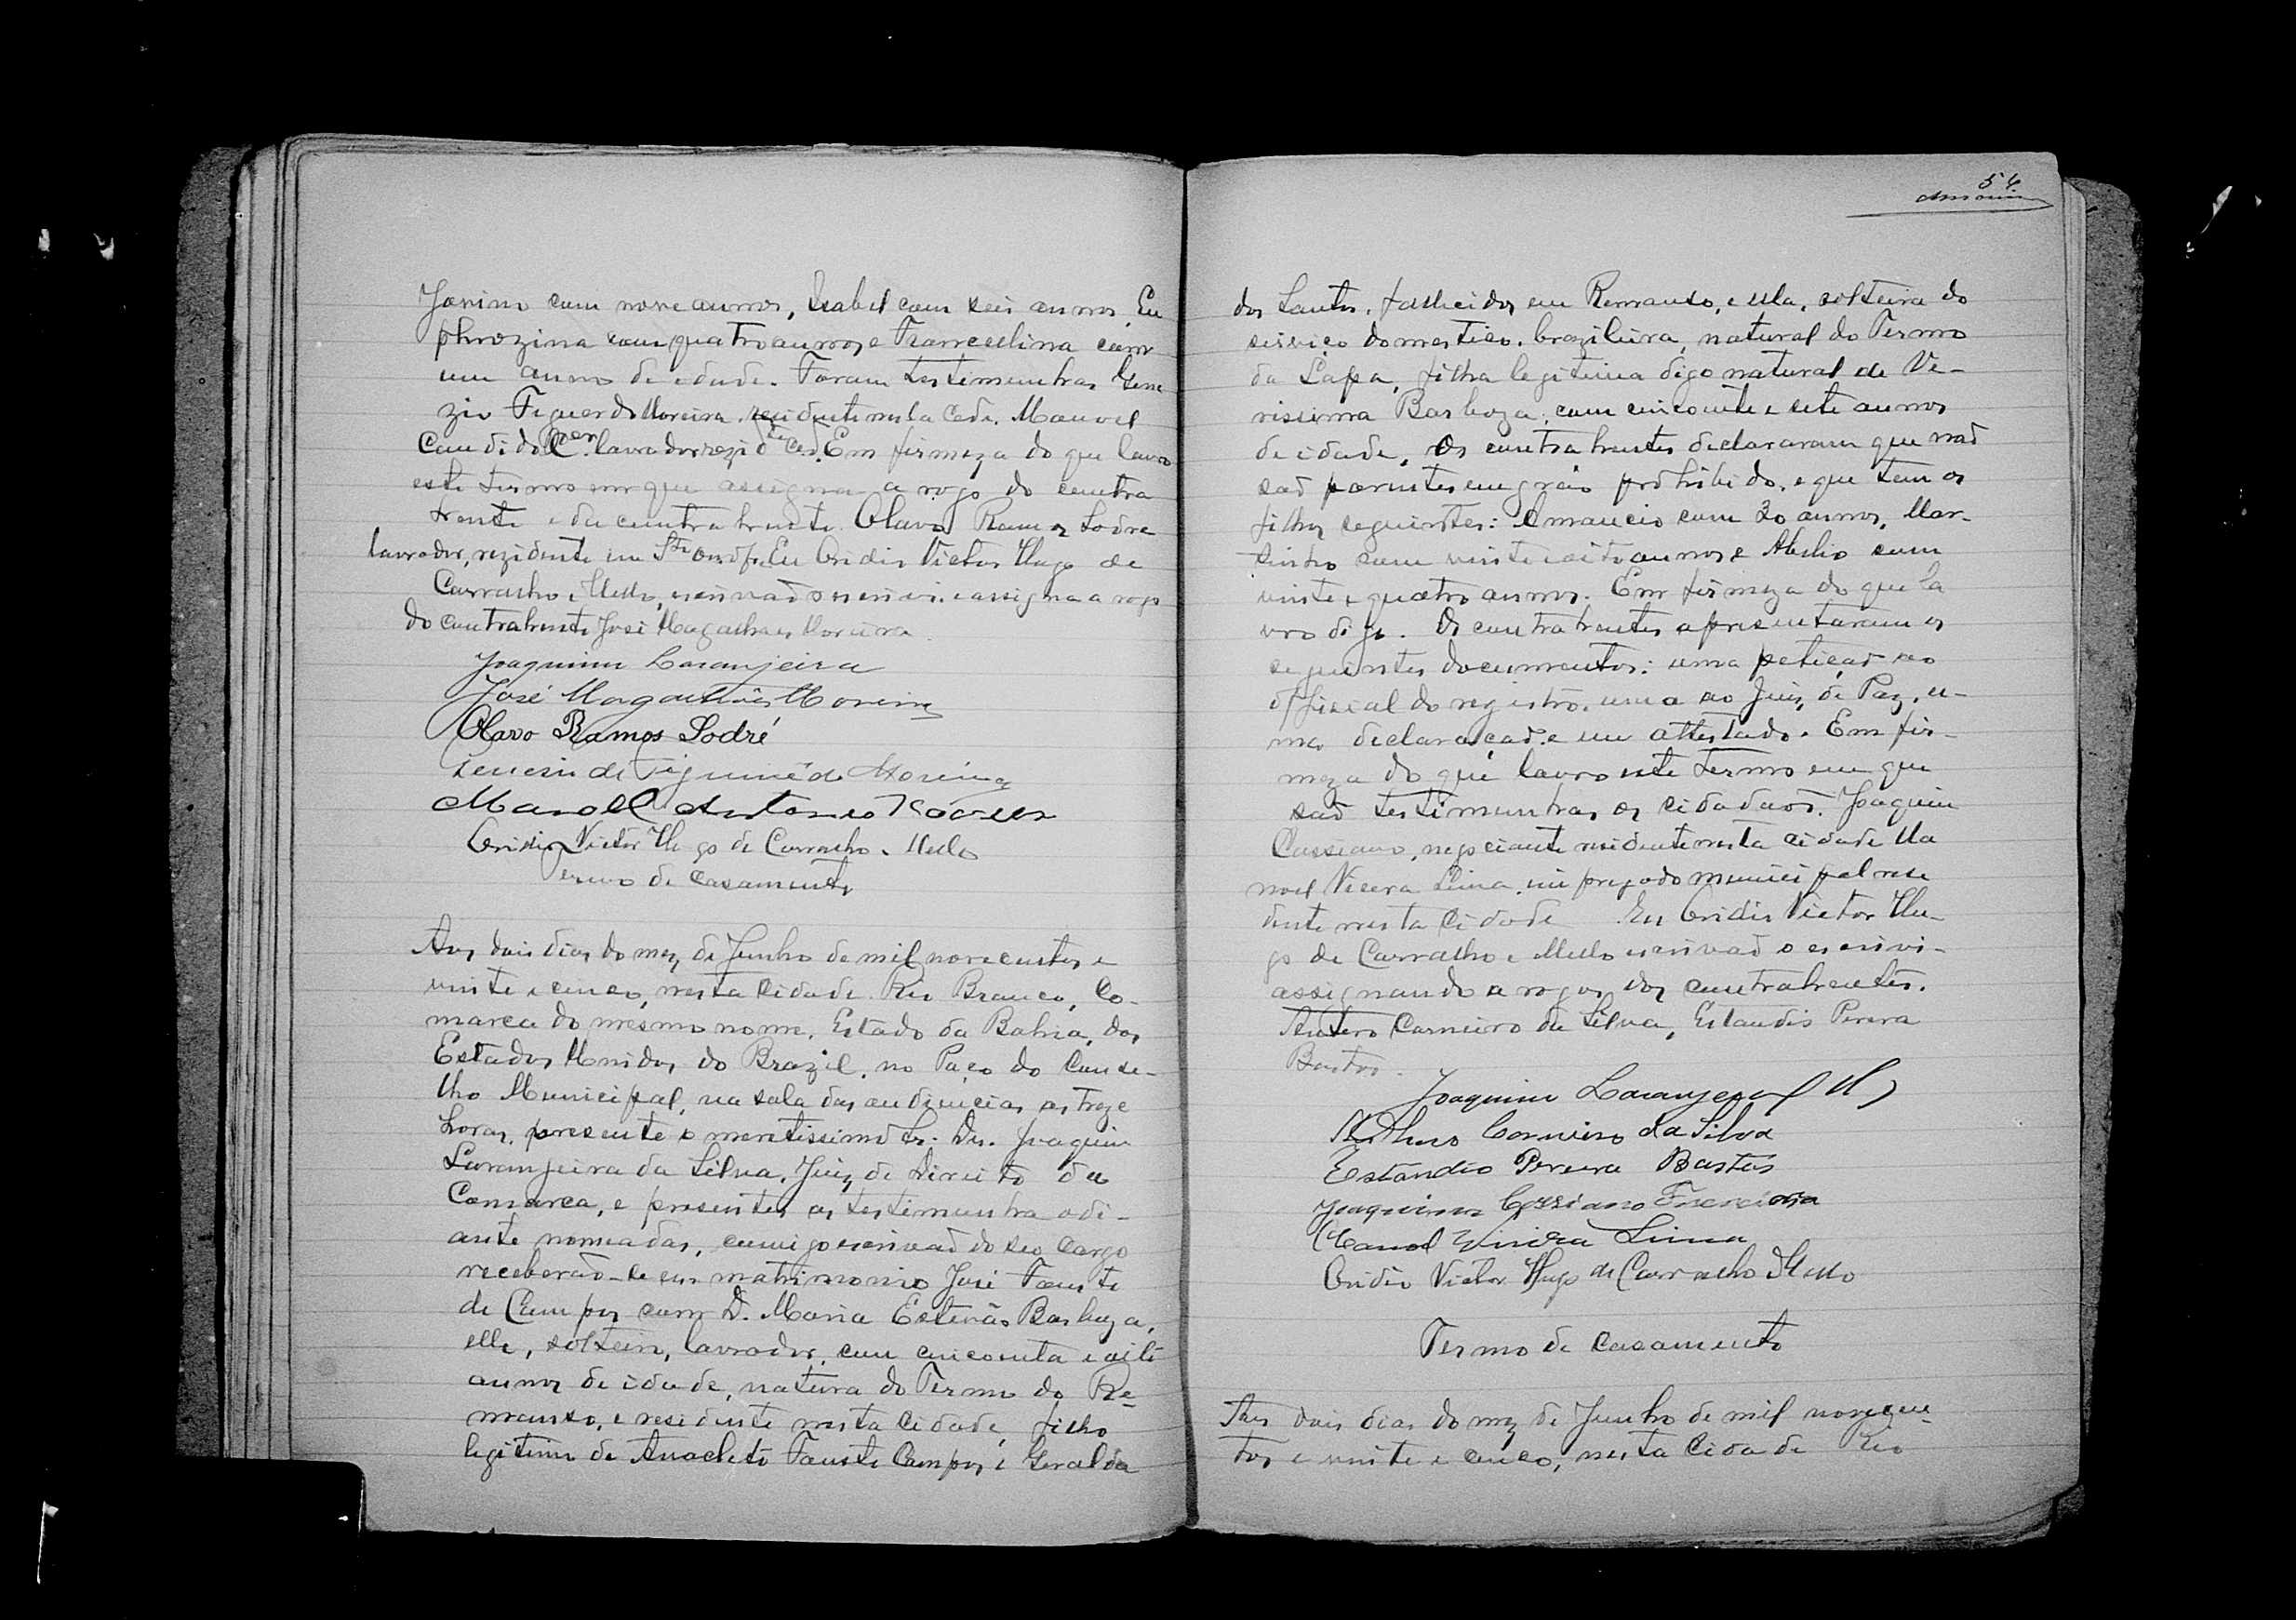 Janino com nove annos, Isabel com seis annos, Eu
phrozina com quatro annos e Francelina com
um anno de idade. Foram testemunhas Gene
zio Figuerdo Moreira, residente nesta Cede. Manoel
Candido lavrador Em firmeza do que lavro
este termo em que assigna a rogo do contra
hente e da contrahente. Olavo Ramos Sodre
lavrador, rezidente em Eu Ovidio Victor Hugo de
Carvalho e Mello, escrivaõ o escrivi. e assigna a rogo
do contrahente José Magalhaes Moreira
Joaquim Laranjeira
José Magalhães Moreira
Olavo Ramos Sodré
Genesio de Figueirêdo Moreira
Manoel Antonio
Ovidio Victor Hugo de Carvalho e Mello
Termo de casamento
Aos dois dias do mez de Junho de mil novecentos e
vinte e cinco, nesta Cidade Rio Branco, Co-
marca do mesmo nome, Estado da Bahia, dos
Estados Unidos do Brazil, no Paço do Conse-
lho Municipal, na sala das audiencias as treze
horas, presente o meretissimo Sr. Dr. Joaquim
Laranjeira da Silva, Juiz de Direito da
Comarca, e presentes as testimunha adi-
ante nomeadas, comigo escrivaõ do seo cargo
receberaõ-se em matrimonio José Fausto
de Campos com D. Maria Estevão Barboza,
elle, solteiro, lavrador, com cincoenta e oito
annos de idade, natura do Termo do Re-
manso, e residente nesta Cidade, filho
legitimo de Anacleto Fausto Campos e Geralda
54
dos Santos, fallecidos em Remanso, e ella, solteira do
serviço domestico, brazileira, natural do Termo
da Lapa, filha legitima digo natural de Ve-
rissima Barboza, com cincoente e sete annos
de idade. Os contrahentes declararam que naõ
saõ parentes em gráo prohibido, e que tem os
filhos seguintes: Amancio com 30 annos, Mar-
tinho com vinte e oito annos e Abilio com
vinte e quatro annos. Em firmeza do que la
vro digo. Os contrahentes apresentaram os
seguintes documentos: uma petiçaõ ao
official do registro, uma ao Juiz de Paz, u-
ma declaraçaõ e um attestado. Em fir-
meza do que lavro este termo em que
saõ testimunhas os cidadaos. Joaquim
Cassiano, negociante residente nesta cidade Ma
noel Vieira Lima, impregado municipal resi
dente nesta Cidade Eu Ovidio Victor Hu-
go de Carvalho e Mello escrivaõ o escrivi-
assignando a rogos dos contrahentes.
Antero Carneiro da Silva, Estandio Perera
Bastos.
Joaquim Laranjeira
Carneiro da Silva
Estandio Pereira Bastos
Joaquim Cassiano
Manoel Vieira Lima
Ovidio Victor Hugo de Carvalho Mello
Termo de casamento
Aos dois dias do mez de Junho de mil novecen-
tos e vinte e cinco, nesta Cidade Rio